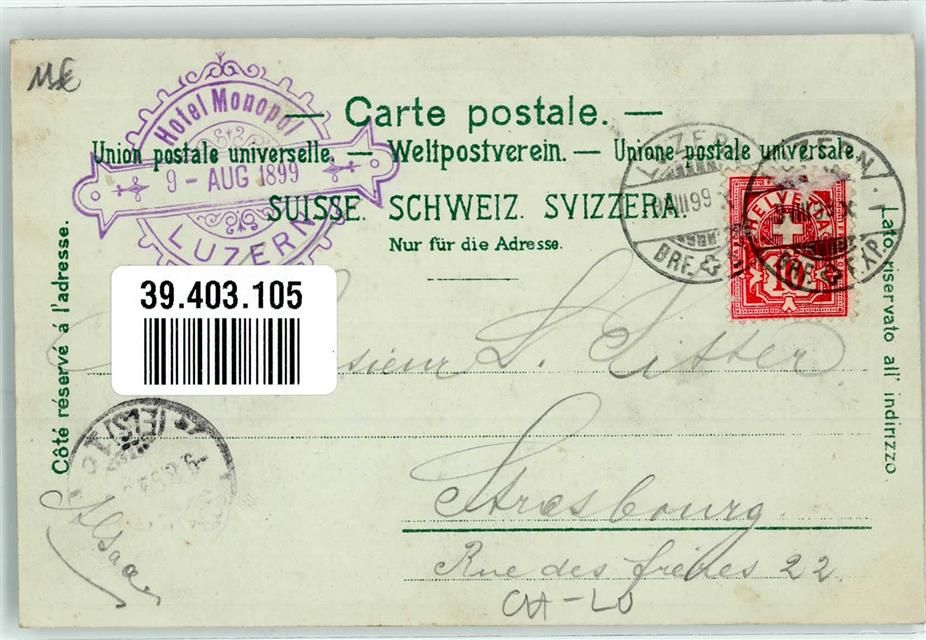 Hotel Monopol
9 - AUG 1899
LUZERN
— Carte postale. —
Union postale universelle. — Weltpostverein. — Unione postale universale.
SUISSE. SCHWEIZ. SVIZZERA.
Nur für die Adresse.
LUZERN
BRF. EXP.
HELVETIA
10
Côté réservé à l'adresse.
Lato riservato all' indirizzo
39.403.105
Monsieur L. Sitter.
Strasbourg.
Rue des frères 22
Alsace
CH-LU